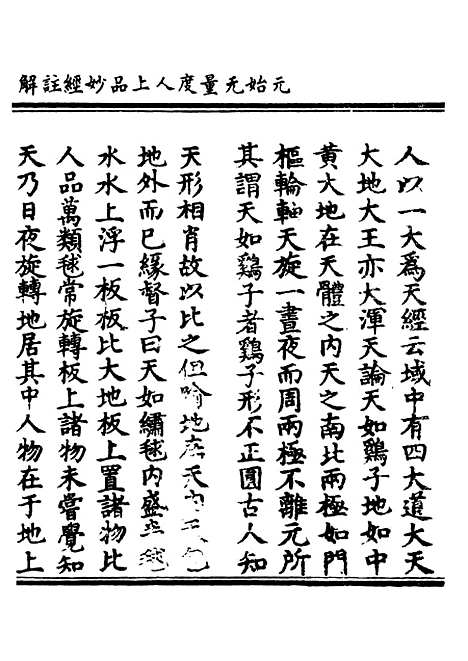 元始无量度人上品妙經註解
人以一大爲天經云域中有四大道大天
大地大王亦大渾天論天如鷄子地如中
黄大地在天體之内天之南北兩極如門
樞輪軸天旋一晝夜而周兩極不離元所
其謂天如鷄子者鷄子形不正圓古人知
天形相肖故以比之但喻地在天内天包
地外而已緣督子曰天如繡毬内盛半毬
水水上浮一板板比大地板上置諸物比
人品萬類毬常旋轉板上諸物未嘗覺知
天乃日夜旋轉地居其中人物在于地上